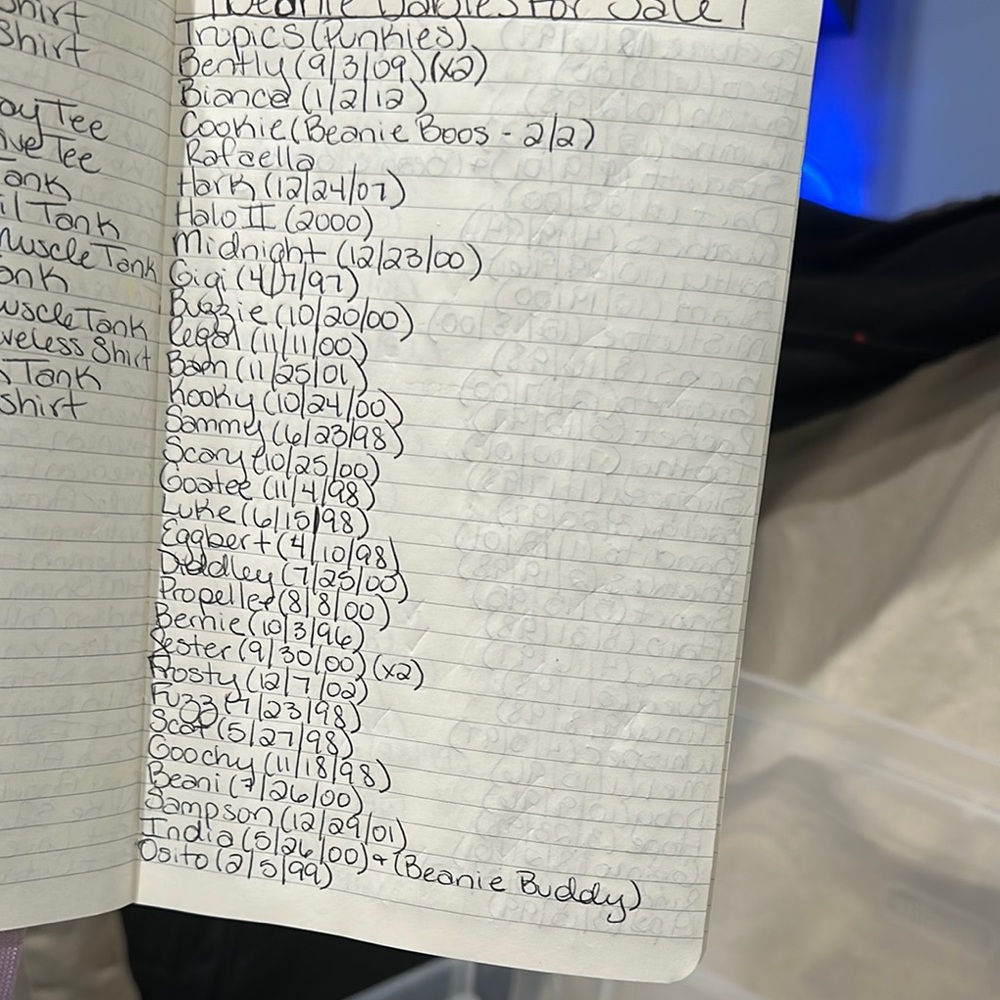 Shirt
Shirt
Tee
Tee
Tank
Tank
Muscle Tank
Tank
Muscle Tank
Shirt
Tank
Shirt
Beanie Babies For Sale
Tropics (Punkies)
Bently (9/3/09) (x2)
Bianca (1/2/12)
Cookie (Beanie Boos - 2/2)
Rafaella
Hark (12/24/07)
Halo II (2000)
Midnight (12/23/00)
Gigi (4/7/97)
Buzzie (10/20/00)
Regal (11/11/00)
Bam (11/25/01)
Kooky (10/24/00)
Sammy (6/23/98)
Scary (10/25/00)
Goatee (11/4/98)
Luke (6/15/98)
Eggbert (4/10/98)
Diddley (7/25/00)
Propeller (8/8/00)
Bernie (10/3/96)
Jester (9/30/00) (x2)
Frosty (12/7/02)
Fuzz (7/23/98)
Scat (5/27/98)
Goochy (11/18/98)
Beani (7/26/00)
Sampson (12/29/01)
India (5/26/00) + (Beanie Buddy)
Osito (2/5/99)